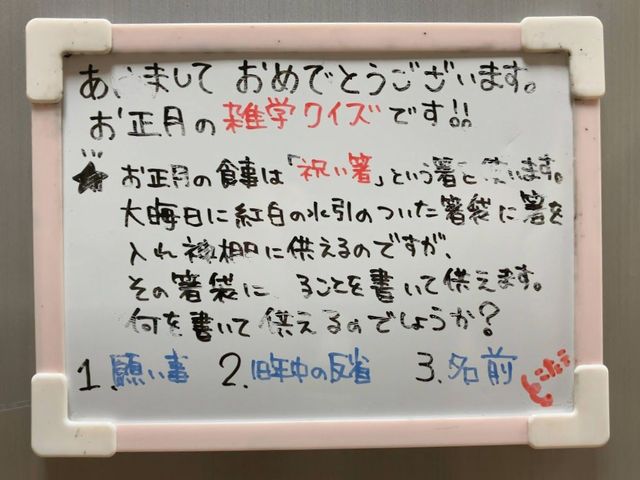 あ まして おめでとうございます。
お正月の雑学クイズです!!
★ お正月の食事は「祝い箸」という箸を使います。
大晦日に紅白の水引のついた箸袋に箸を
入れ神棚に供えるのですが、
その箸袋に、 ることを書いて供えます。
何を書いて供えるのでしょうか?
1. 願い事 2. 旧年中の反省 3. 名前